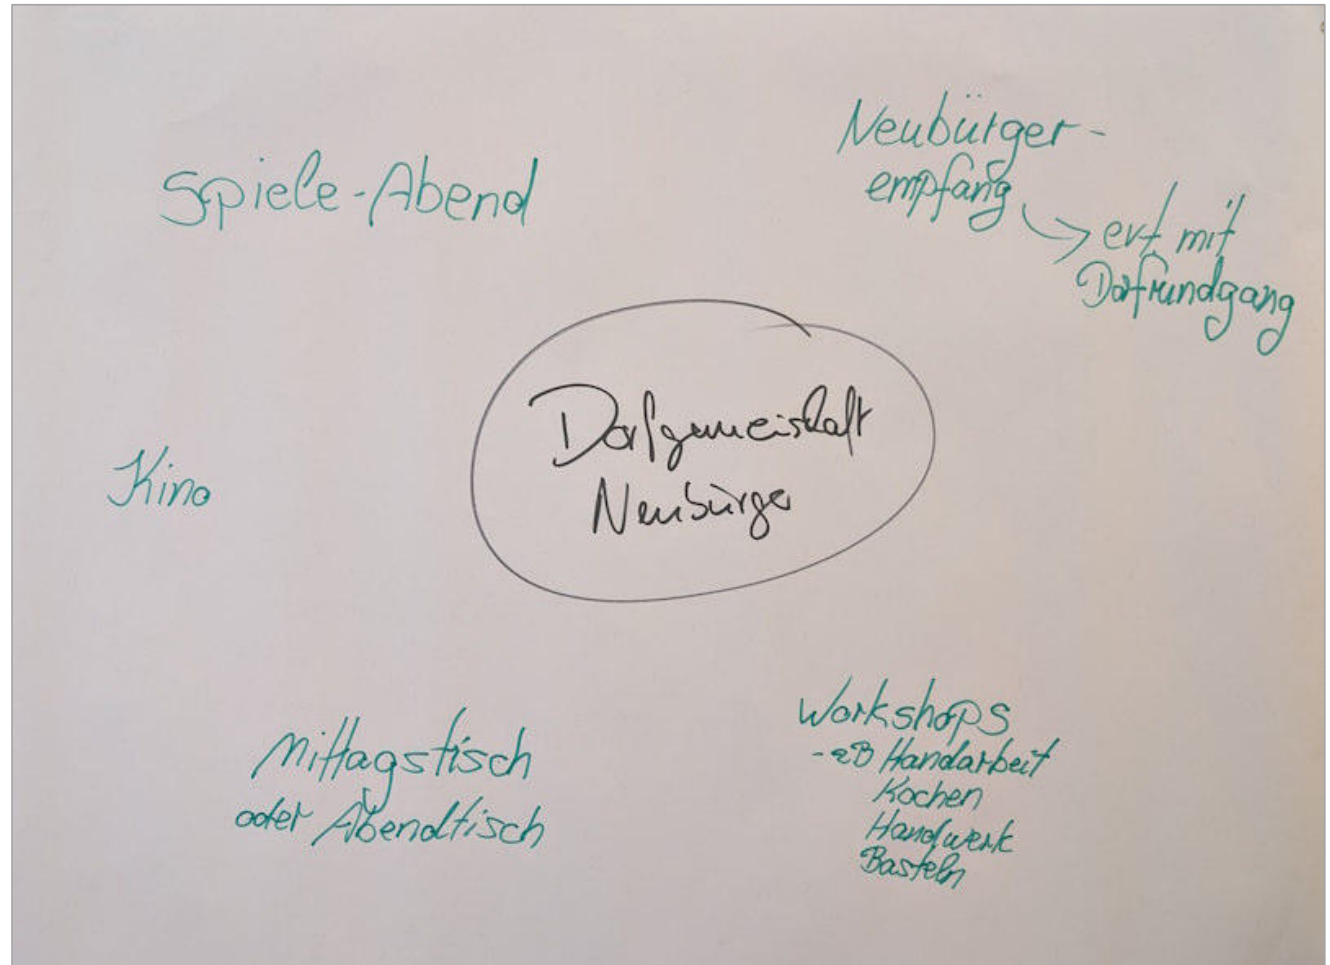 Spiele-Abend
Neubürger-
empfang
evt. mit
Dorfrundgang
Dorfgemeischaft
Neubürger
Kino
Mittagstisch
oder Abendtisch
Workshops
- zB Handarbeit
Kochen
Handwerk
Basteln